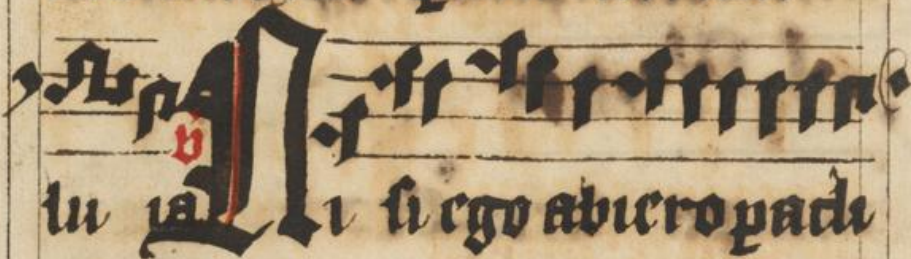 lu ia ℣ Ni si ego abiero pacli